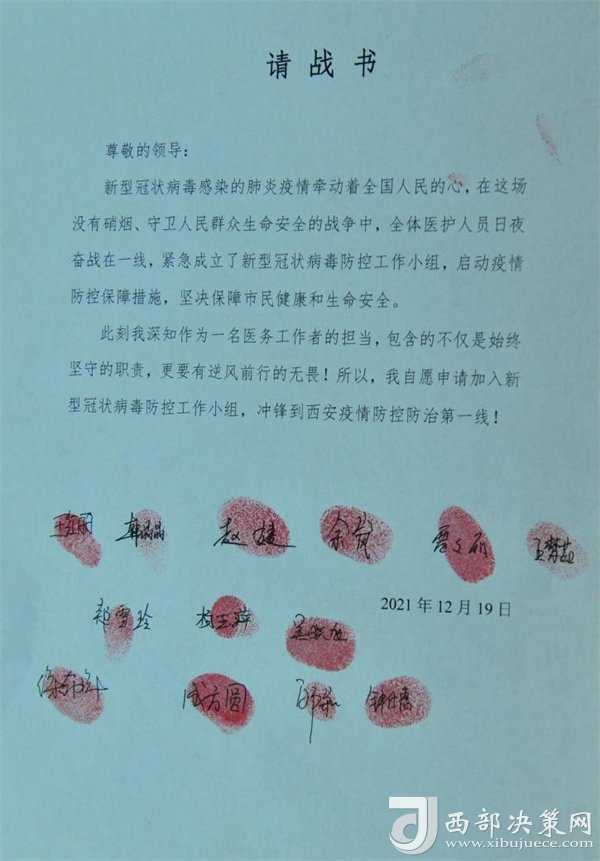 请战书
尊敬的领导：
新型冠状病毒感染的肺炎疫情牵动着全国人民的心，在这场
没有硝烟、守卫人民群众生命安全的战争中，全体医护人员日夜
奋战在一线，紧急成立了新型冠状病毒防控工作小组，启动疫情
防控保障措施，坚决保障市民健康和生命安全。
此刻我深知作为一名医务工作者的担当，包含的不仅是始终
坚守的职责，更要有逆风前行的无畏！所以，我自愿申请加入新
型冠状病毒防控工作小组，冲锋到西安疫情防控防治第一线！
韩晶晶 赵健
2021年12月19日
郭雪玲
成方圆
西部决策网
www.xibujuece.com